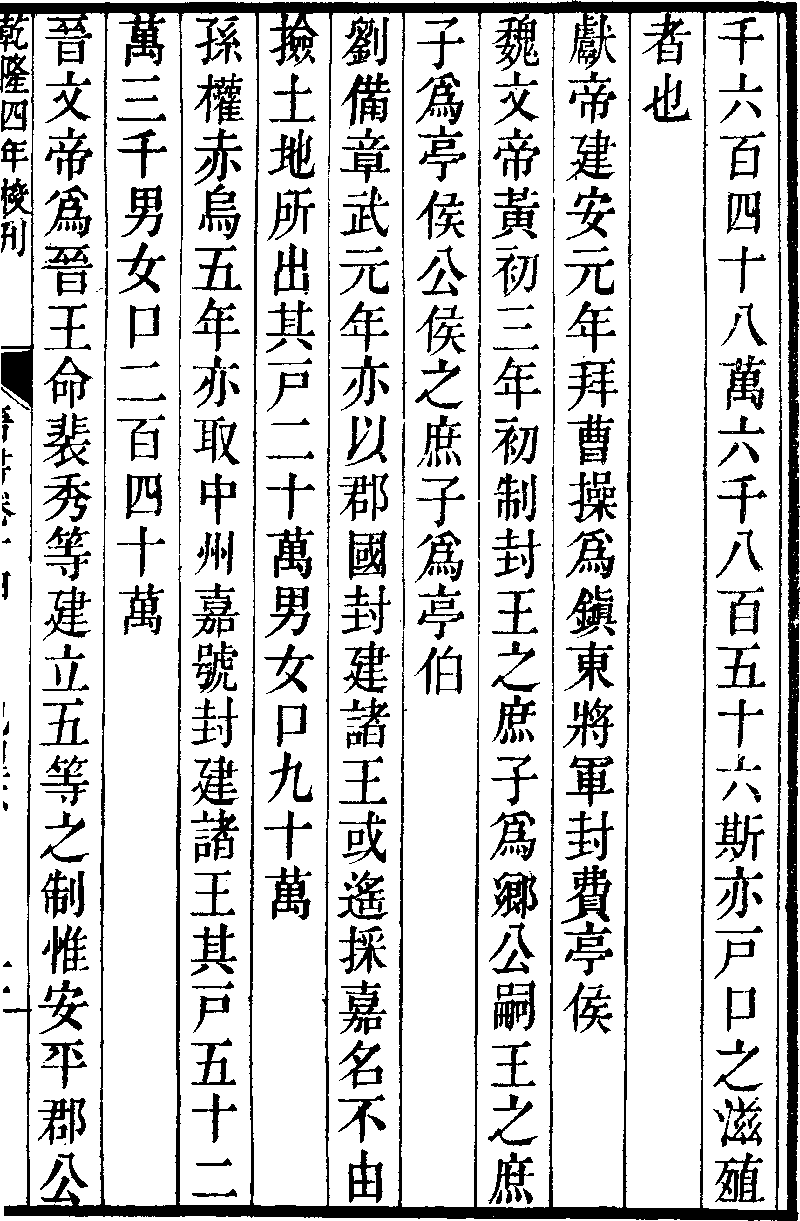 千六百四十八萬六千八百五十六斯亦戸口之滋殖
者也
獻帝建安元年拜曹操爲鎭東將軍封費亭侯
魏文帝黃初三年初制封王之庶子爲鄉公嗣王之庶
子爲亭侯公侯之庶子爲亭伯
劉備章武元年亦以郡國封建諸王或遙採嘉名不由
撿土地所出其戸二十萬男女口九十萬
孫權赤烏五年亦取中州嘉號封建諸王其戸五十二
萬三千男女口二百四十萬
晉文帝爲晉王命裴秀等建立五等之制惟安平郡公
乾隆四年校刊